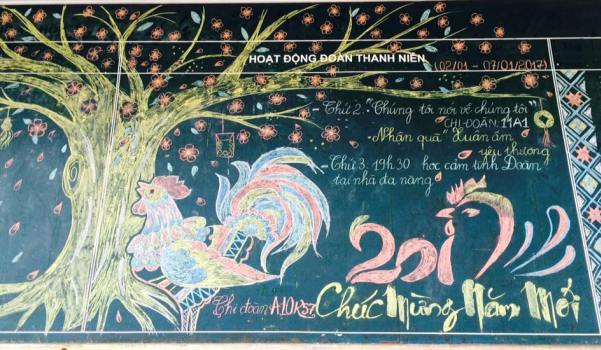 HOẠT ĐỘNG ĐOÀN THANH NIÊN (02/01 - 07/01/2017)
- Thứ 2: "Chúng tôi nói về chúng tôi"
CHI ĐOÀN 11A1
"Nhân quả" Xuân ấm
yêu thương
Thứ 3: 19h30 học cảm tình Đoàn
tại nhà đa năng
2017
Chi đoàn A10K57
Chúc Mừng Năm Mới